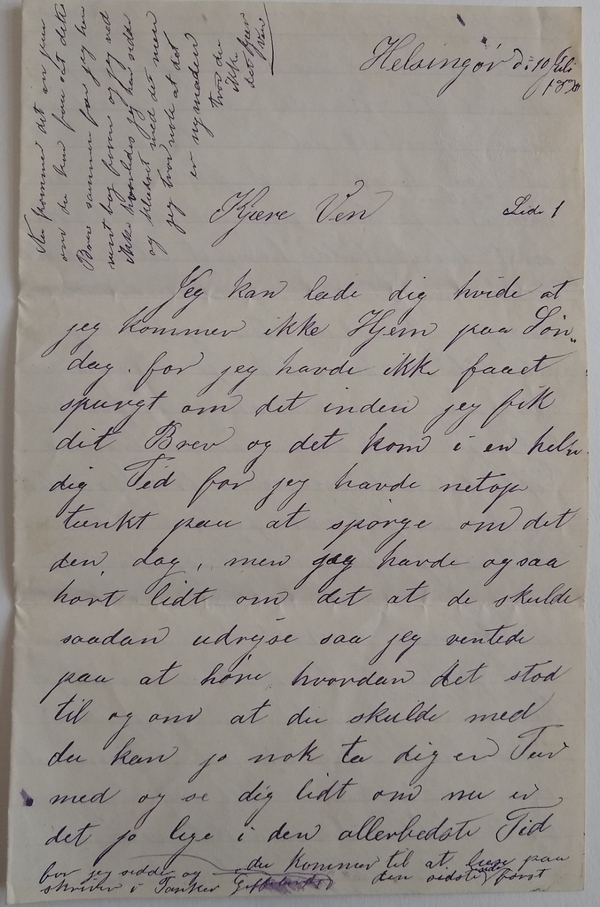 Helsingör d: 10 Juli
Kjære Ven
Side 1
Jeg kan lade dig hvide at
jeg kommer ikke Hjem paa Søn„
dag. for jeg havde ikke faaet
spurgt om det inden jeg fik
dit Brev og det kom i en heln
dig Tid for jeg havde netop
tænkt paa at spörge om det
den dag, men jeg havde ogsaa
hørt lidt om det at de skulde
saadan udrejse saa jeg ventede
paa at høre hvordan det stod
til og om at du skulde med
du kan jo nok ta dig en Tur
med og se dig lidt om nu er
det jo lige i den allerbedste Tid
for jeg sidder og
skriver i Tanker
du Kommer til at læse paa
den sidste Side först
om du kan faa alt dette
Bare sammen for jeg har
vent bog forme og jeg ved
ikke hvorledes jeg har sidde
og klattret med det men
jeg tror nok at det
er nymaaden
tror du
ikke
det kjær
Ven